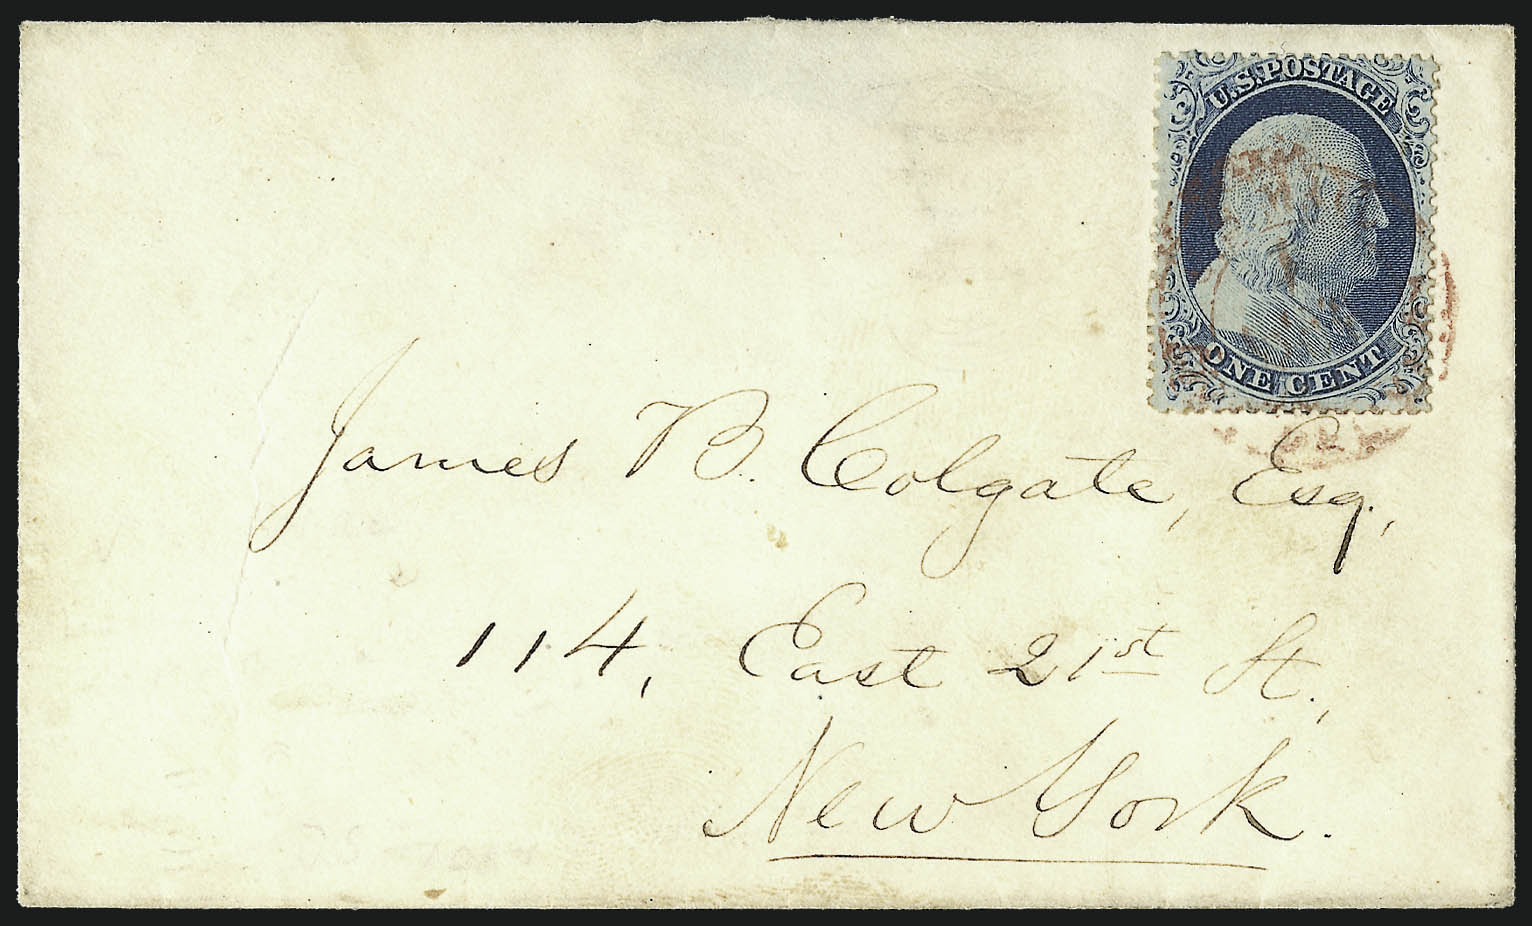 U.S. POSTAGE
ONE CENT
James B. Colgate, Esq.,
114, East 21st St.,
New York.